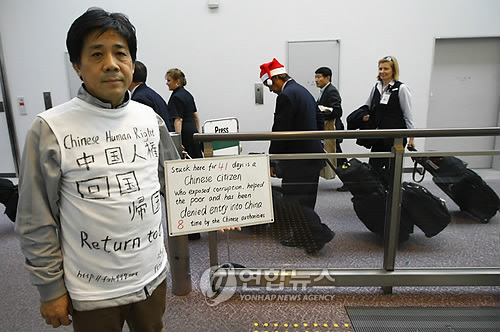 Chinese Human Right
中国人権
回国
帰国
Return to
http://fzh999
Press
Stuck here for 41 days is a
Chinese citizen
who exposed corruption, helped
the poor and has been
denied entry into China
8 time by the Chinese authorities
연합뉴스
YONHAP NEWS AGENCY